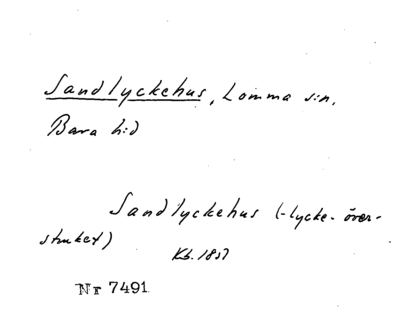 Sandlyckehus, Lomma sn,
Bara hd
Sandlyckehus (-lycke- över-
struket)
Kb. 1857
Nr 7491